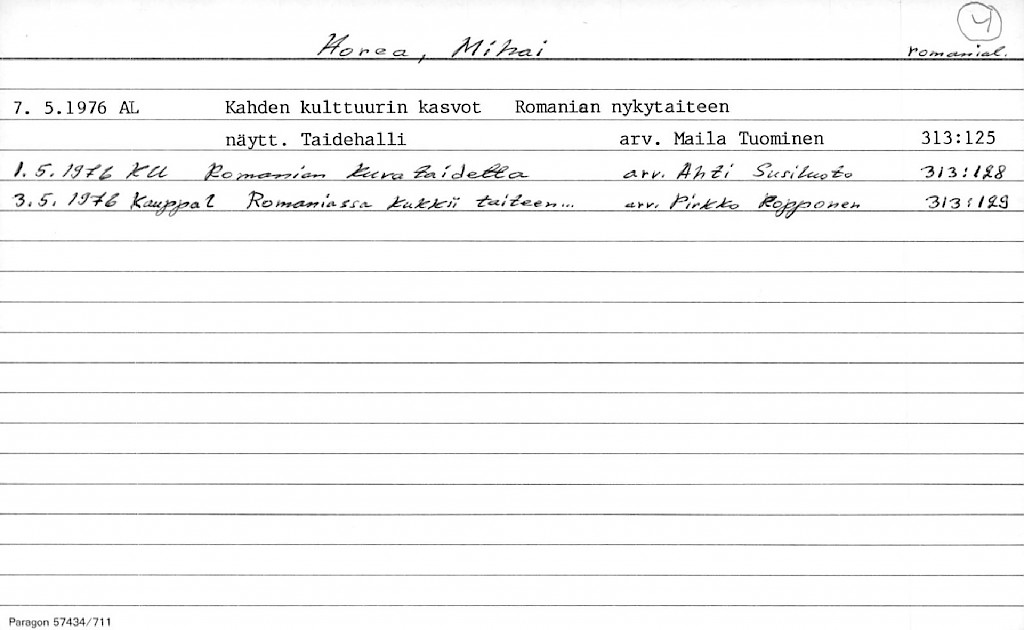 4
Horea, Mihai romanial.
7. 5.1976 AL Kahden kulttuurin kasvot Romanian nykytaiteen
näytt. Taidehalli arv. Maila Tuominen 313:125
1.5.1976 KU Romanian kuvataidetta arv. Ahti Susiluoto 313:128
3.5.1976 Kauppal Romaniassa kukkii taiteen... arv. Pirkko Ropponen 313:129
Paragon 57434/711